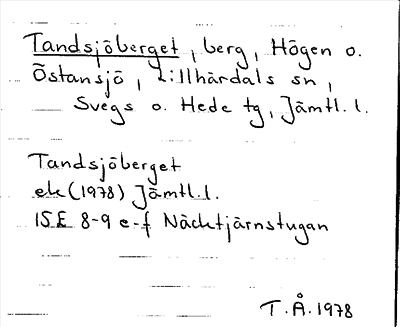 Tandsjöberget, berg, Högen o.
Östansjö, Lillhärdals sn,
Svegs o. Hede tg, Jämtl. l.
Tandsjöberget
ek (1978) Jämtl. l.
15E 8-9 e-f Näcktjärnstugan
T.Å. 1978